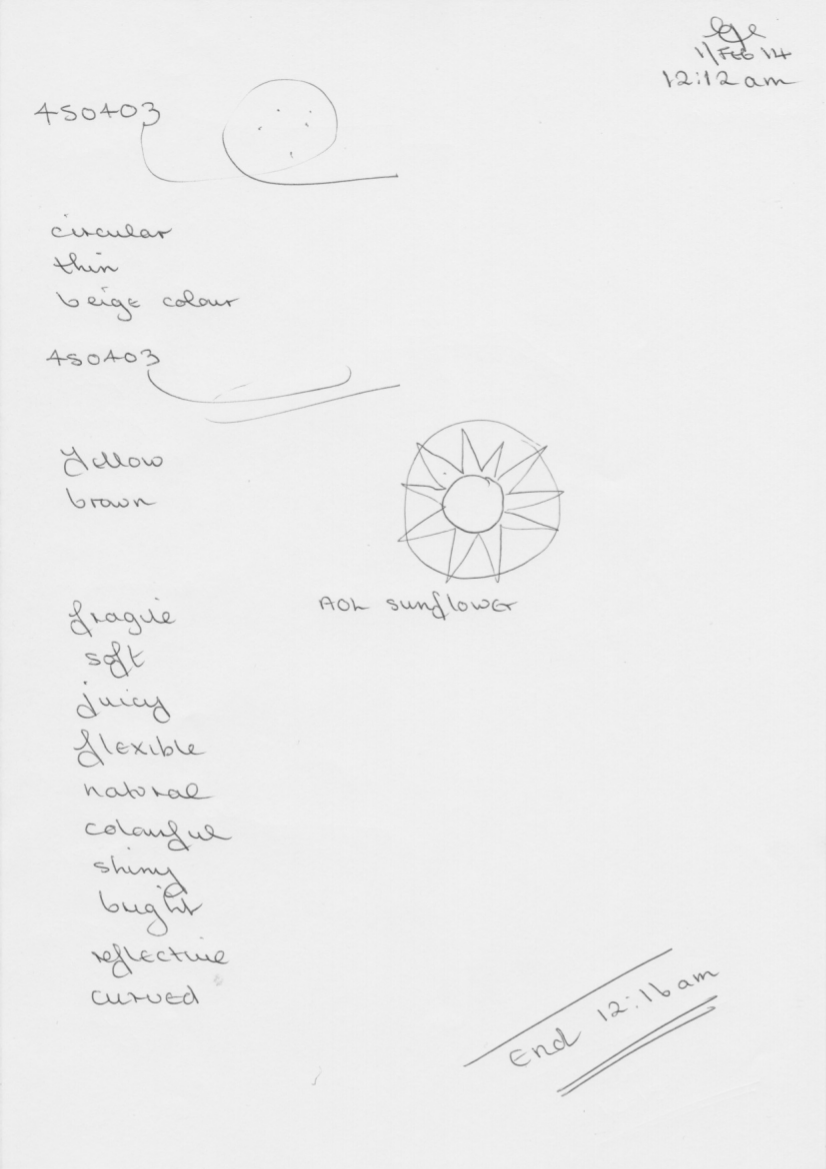 1/FEB 14
12:12 am
450403
circular
thin
beige colour
450403
yellow
brown
AOL sunflower
fragile
soft
juicy
flexible
natural
colourful
shiny
bright
reflective
curved
End 12:16 am